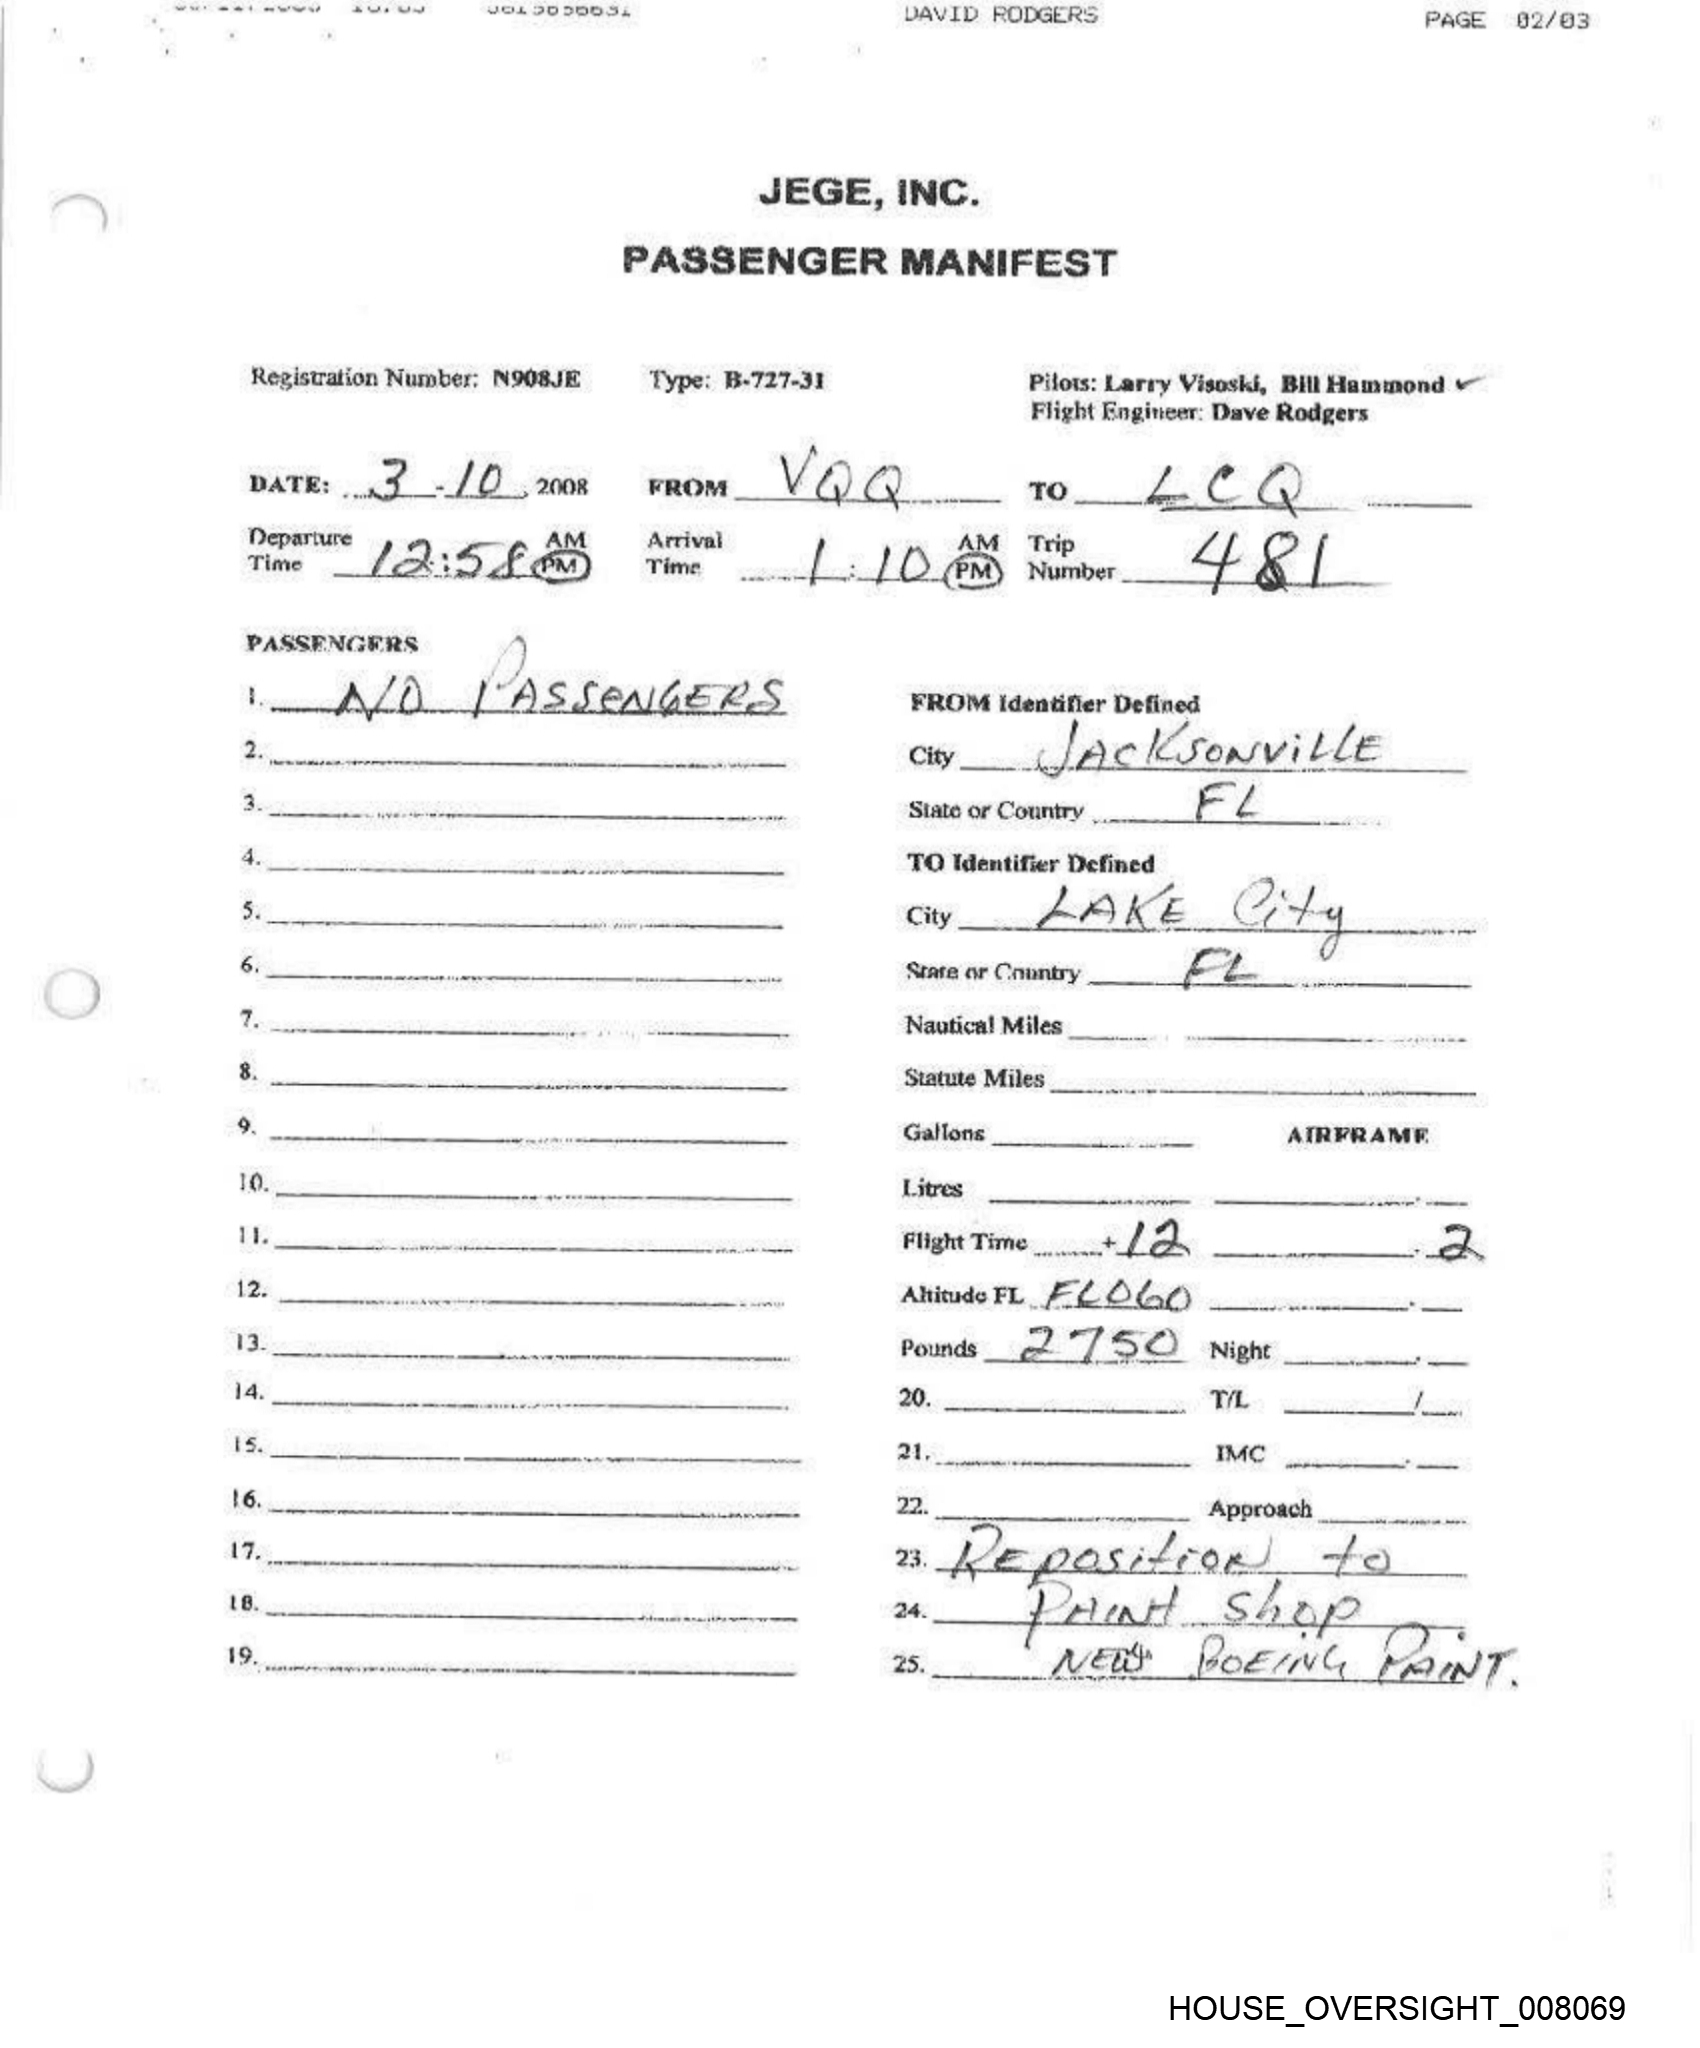 DAVID RODGERS PAGE 02/03
JEGE, INC.
PASSENGER MANIFEST
Registration Number: N908JE Type: B-727-31 Pilots: Larry Visoski, Bill Hammond ✓
Flight Engineer: Dave Rodgers
DATE: 3-10, 2008 FROM VQQ TO LCQ
Departure Time 12:58 AM PM Arrival Time 1:10 AM PM Trip Number 481
PASSENGERS
1. NO PASSENGERS
2.
3.
4.
5.
6.
7.
8.
9.
10.
11.
12.
13.
14.
15.
16.
17.
18.
19.
FROM Identifier Defined
City JACKSONVILLE
State or Country FL
TO Identifier Defined
City LAKE City
State or Country FL
Nautical Miles
Statute Miles
Gallons AIRFRAME
Litres
Flight Time +12 .2
Altitude FL FL060
Pounds 2750 Night
20. T/L /
21. IMC
22. Approach
23. REPOSITION to
24. PAINT Shop
25. NEW BOEING PAINT.
HOUSE_OVERSIGHT_008069